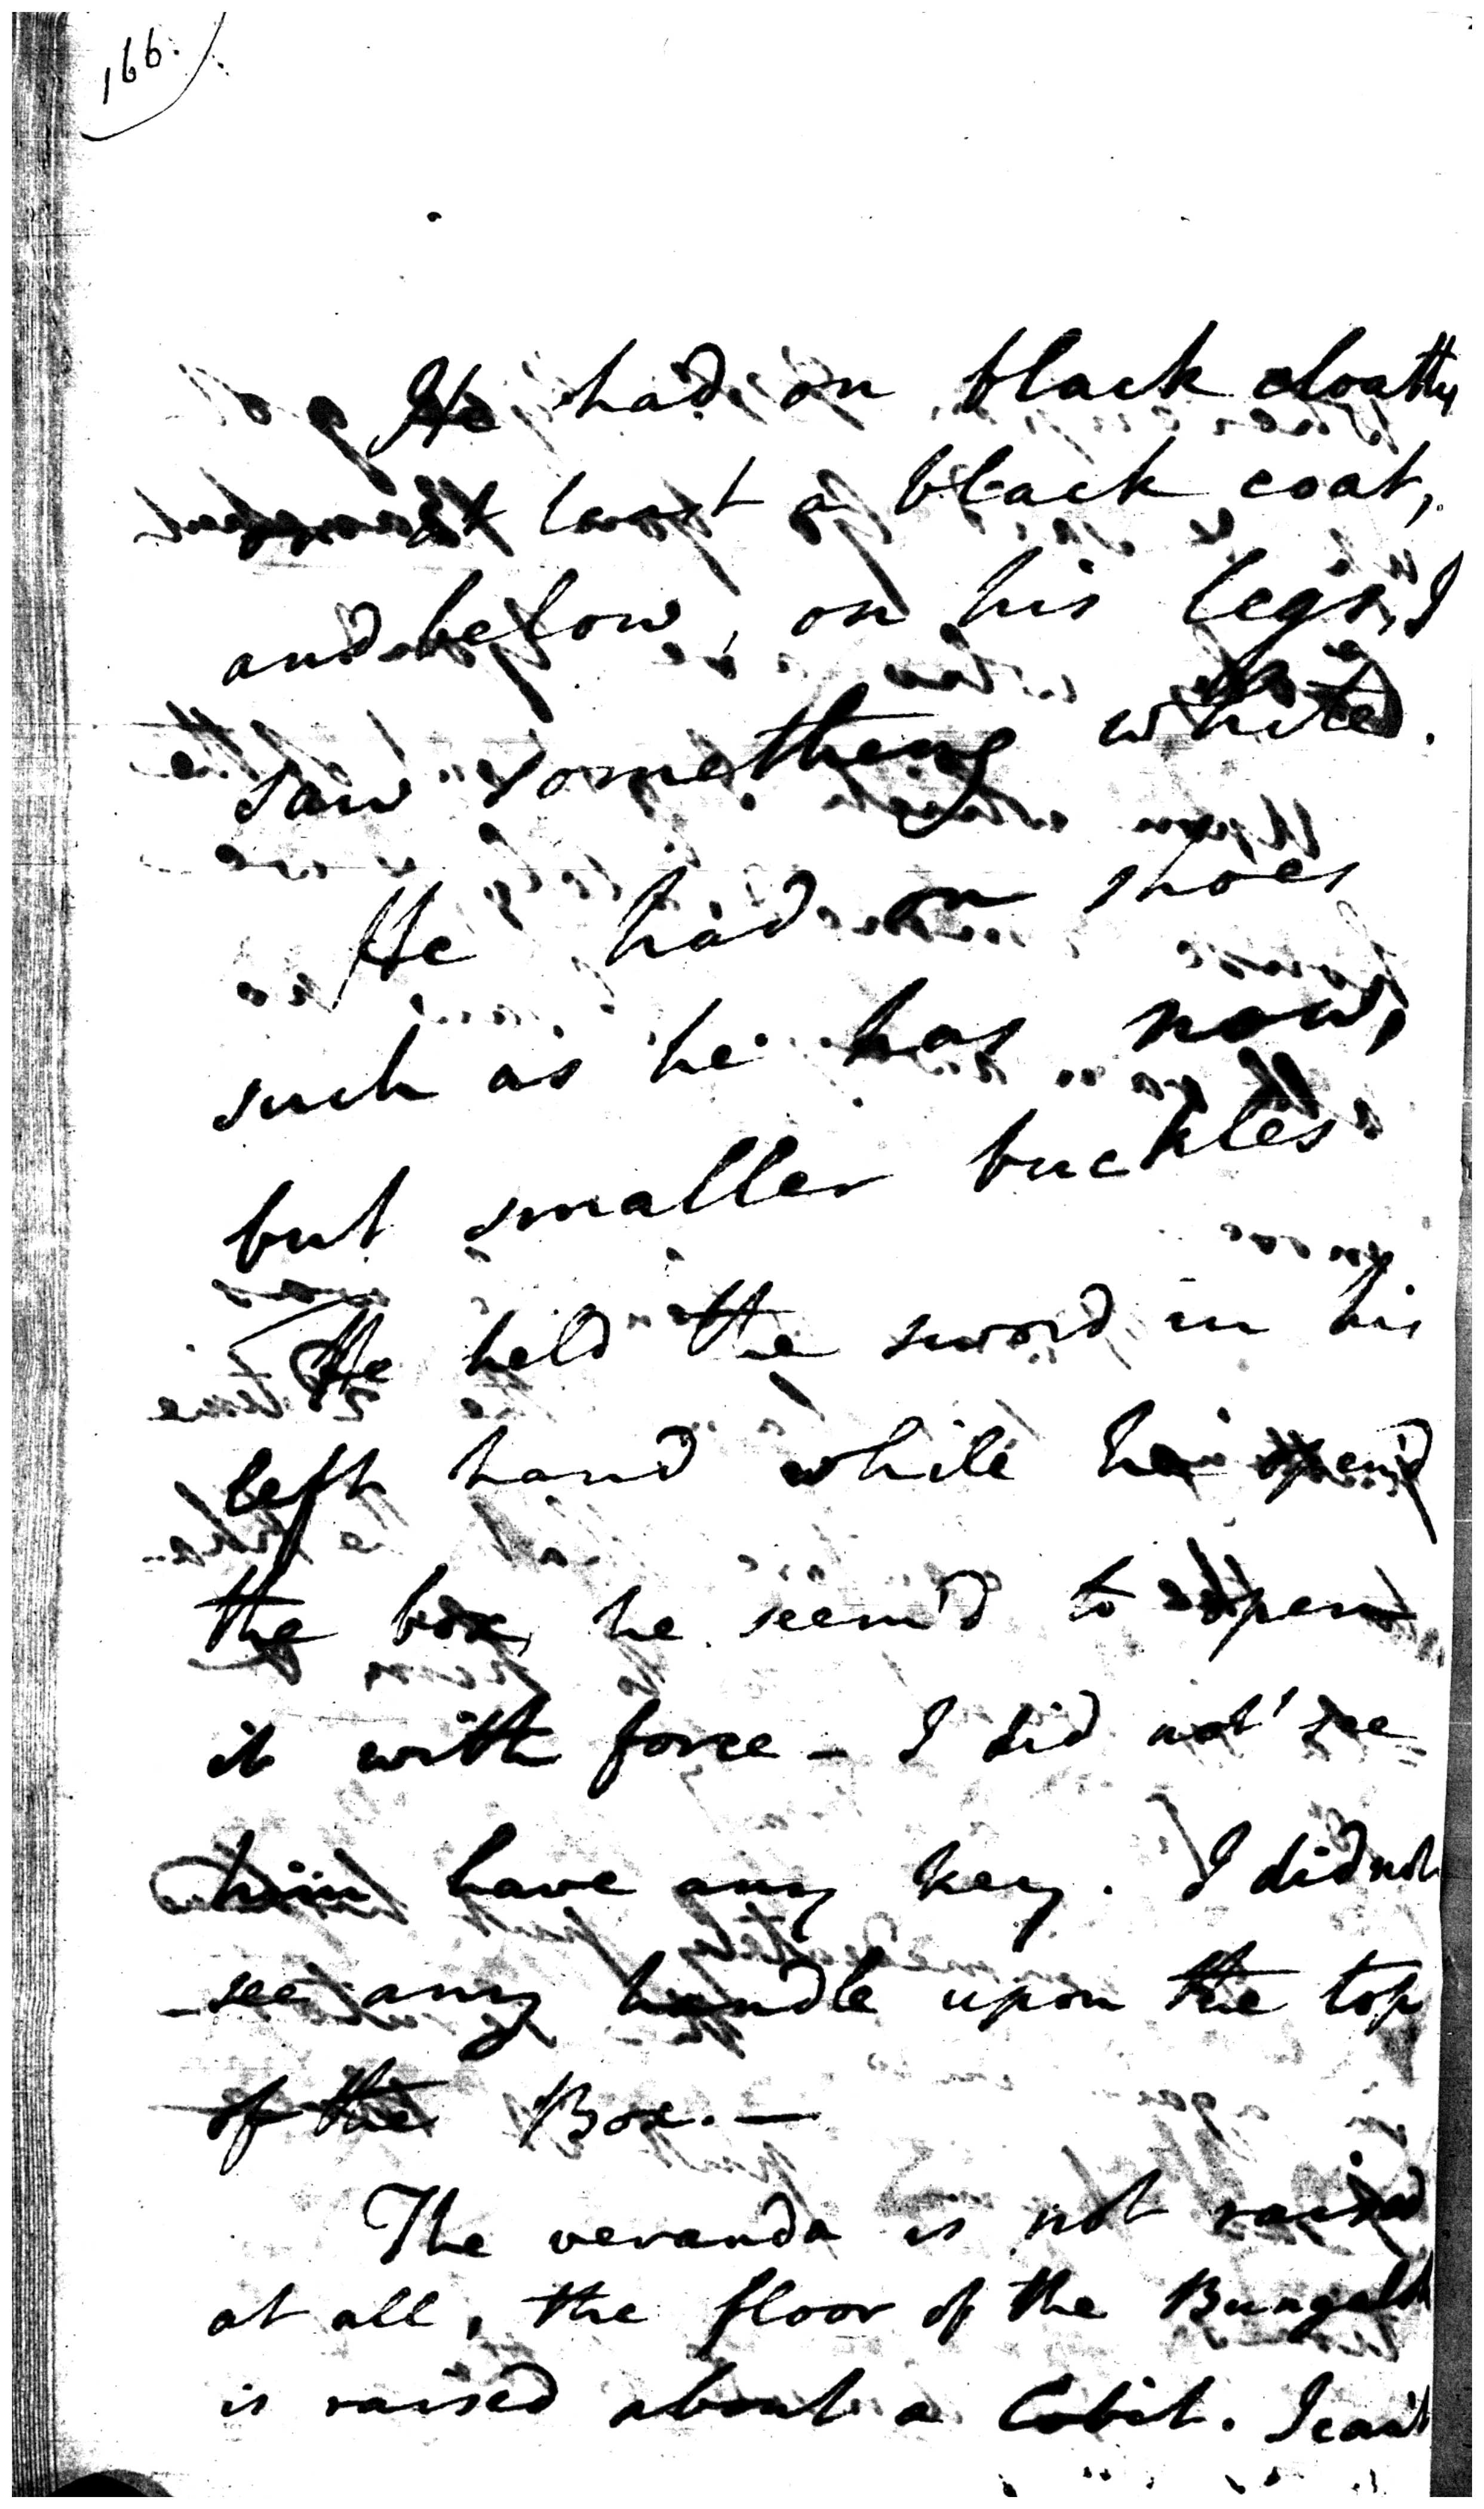 166.
He had on black cloaths
at least a black coat,
and below, on his legs, I
saw something white.
He had on shoes
such as he has now,
but smaller buckles.
He held the sword in his
left hand while he open'd
the box, he seem'd to open
it with force - I did not see
him have any key. I did not
see any handle upon the top
of the Box. -
The veranda is not raised
at all, the floor of the
is raised about a Cobit. I can't